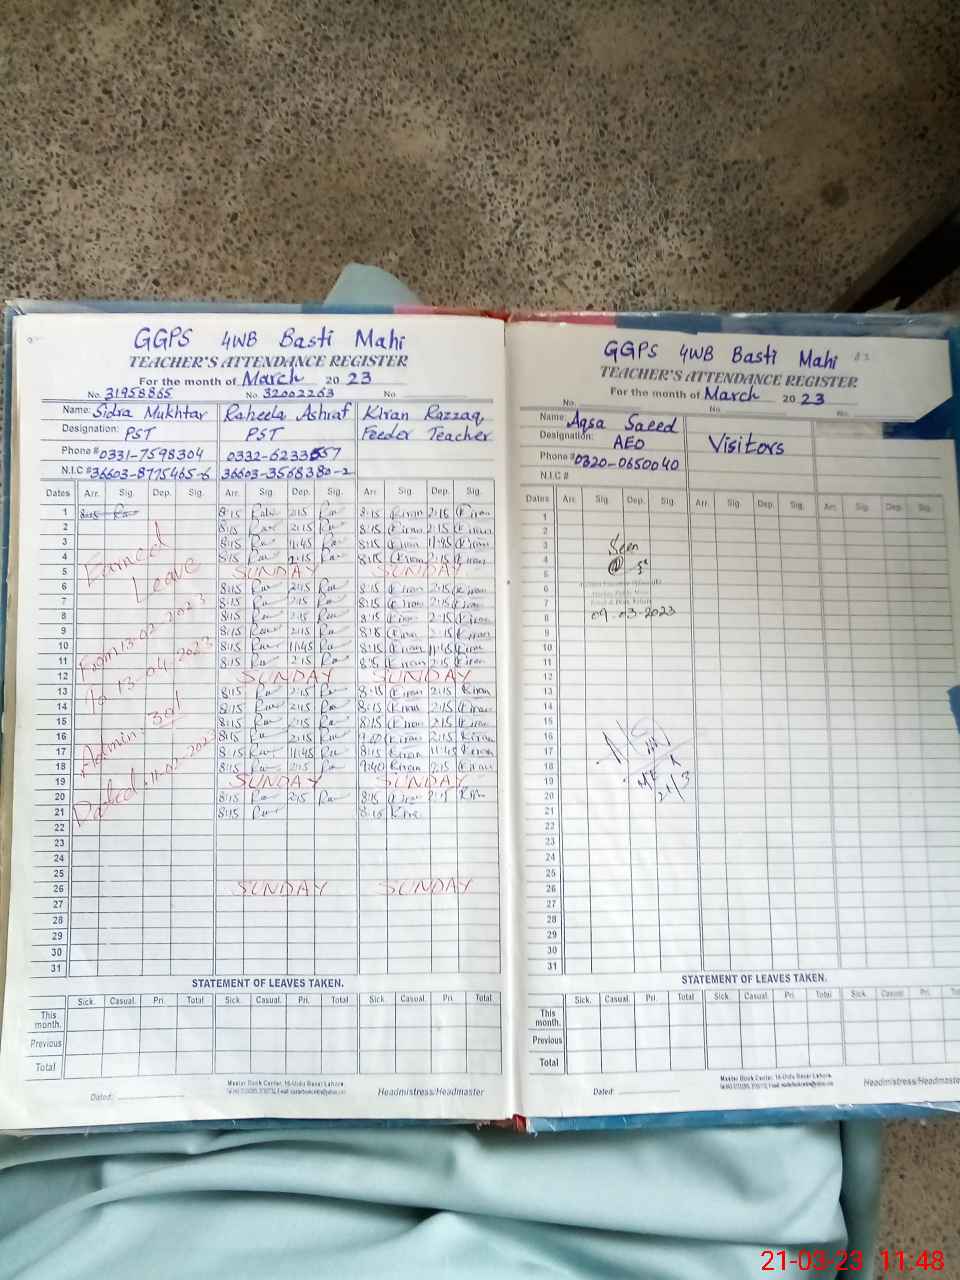 GGPS 4WB Basti Mahi
TEACHER'S ATTENDANCE REGISTER
For the month of March 2023
No. 31958865 No. 32002263 No.
Name: Sidra Mukhtar Raheela Ashraf Kiran Razzaq
Designation: PST PST Feeder Teacher
Phone # 0331-7598304
N.I.C #
Dates Arr. Sig. Dep. Sig. Arr. Sig. Dep. Sig. Arr. Sig. Dep. Sig.
1 8:15 2:15 8:15 Kiran Kiran
2 8:15 2:15 8:15 Kiran 2:15 Kiran
3 8:15 11:45 8:15 Kiran 11:45 Kiran
4 8:15 2:15 8:15 Kiran 2:15 Kiran
5 SUNDAY SUNDAY
6 8:15 2:15 8:15 Kiran 2:15 Kiran
7 8:15 2:15 8:15 Kiran 2:15 Kiran
8 8:15 2:15 8:15 Kiran 2:15 Kiran
9 8:15 2:15 8:15 Kiran 2:15 Kiran
10 8:15 11:45 8:15 Kiran 11:45 Kiran
11 8:15 2:15 8:15 Kiran 2:15 Kiran
12 SUNDAY SUNDAY
13 8:15 2:15 8:15 Kiran 2:15 Kiran
14 8:15 2:15 8:15 Kiran 2:15 Kiran
15 8:15 2:15 8:15 Kiran 2:15 Kiran
16 8:15 2:15 Kiran 2:15 Kiran
17 8:15 11:45 8:15 Kiran 11:45 Kiran
18 8:15 2:15 9:40 Kiran 2:15 Kiran
19 SUNDAY SUNDAY
20 8:15 2:15 8:15 Kiran
21 8:15 Kiran
22
23
24
25
26 SUNDAY SUNDAY
27
28
29
30
31
Earned
Leave
From 13-02-2023
To 13-04-2023
Admin: 301
Dated: 11-02-2023
STATEMENT OF LEAVES TAKEN.
Sick. Casual. Pri. Total Sick. Casual. Pri. Total Sick. Casual. Pri. Total
This
month.
Previous
Total
Master Book Center, 16-Urdu Bazar Lahore.
Dated: Headmistress/Headmaster
GGPS 4WB Basti Mahi
TEACHER'S ATTENDANCE REGISTER
For the month of March 2023
No. No. No.
Name: Aqsa Saeed
Designation: AEO Visitors
Phone # 0320-0650040
N.I.C #
Dates Arr. Sig. Dep. Sig. Arr. Sig. Dep. Sig. Arr. Sig. Dep. Sig.
1
2
3 Seen
4
5
6
7
8 09-03-2023
9
10
11
12
13
14
15
16
17
18
19
20 21/3
21
22
23
24
25
26
27
28
29
30
31
STATEMENT OF LEAVES TAKEN.
Sick. Casual. Pri. Total Sick. Casual. Pri. Total Sick. Casual. Pri. Total
This
month.
Previous
Total
Master Book Center, 16-Urdu Bazar Lahore.
Dated: Headmistress/Headmaster
21-03-23 11:48